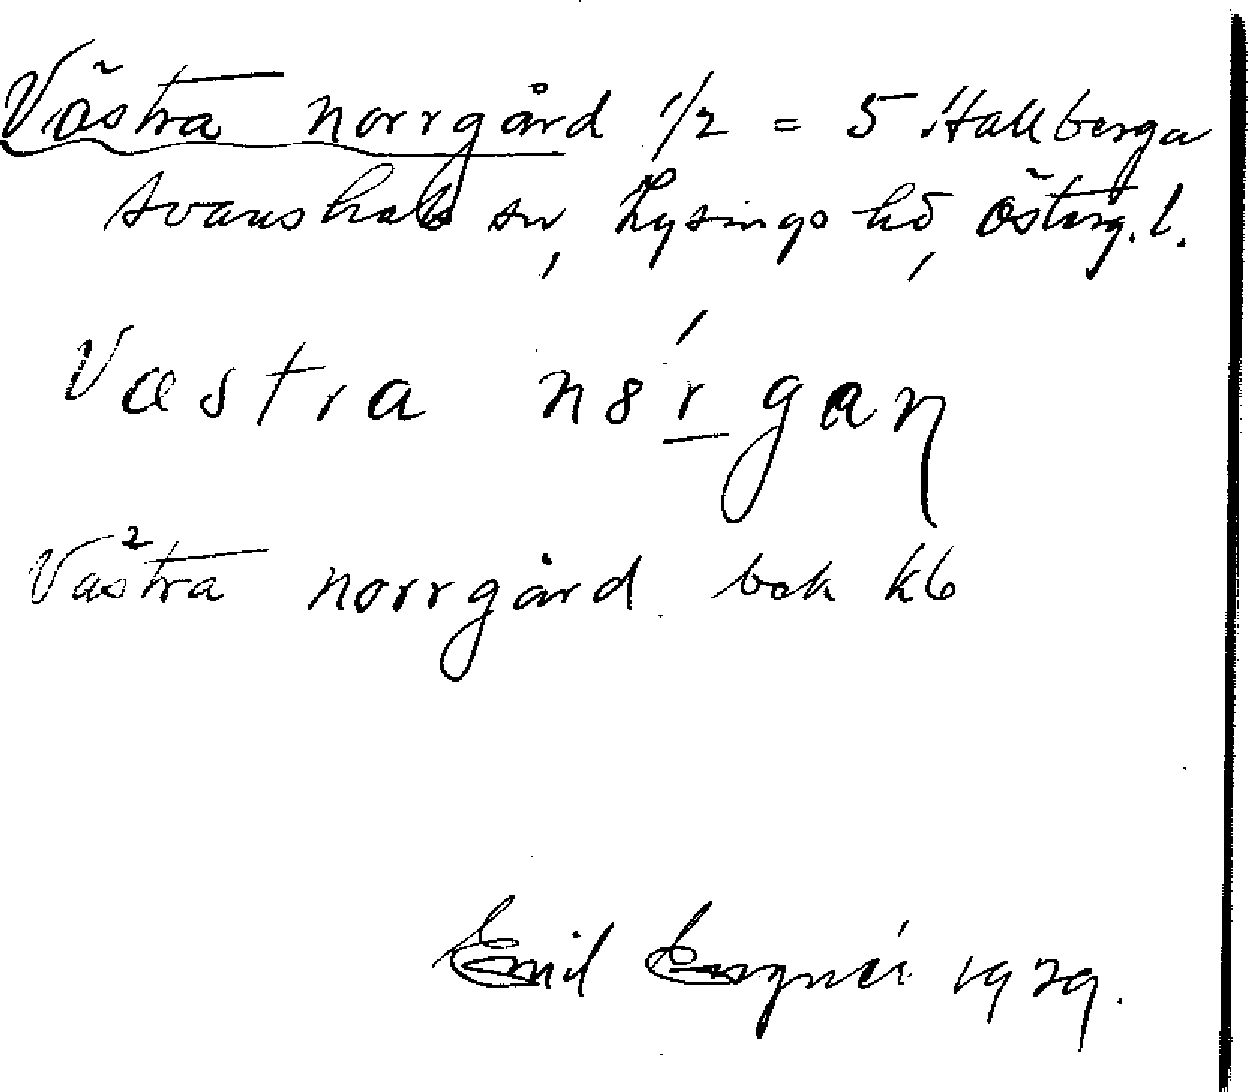 Västra norrgård 1/2 = 5 Hallberga
Svanshals sn, Lysings hd, Österg. l.
Vastra nɜŕgaɳ
Västra norrgård bok kb
Emil 1929.